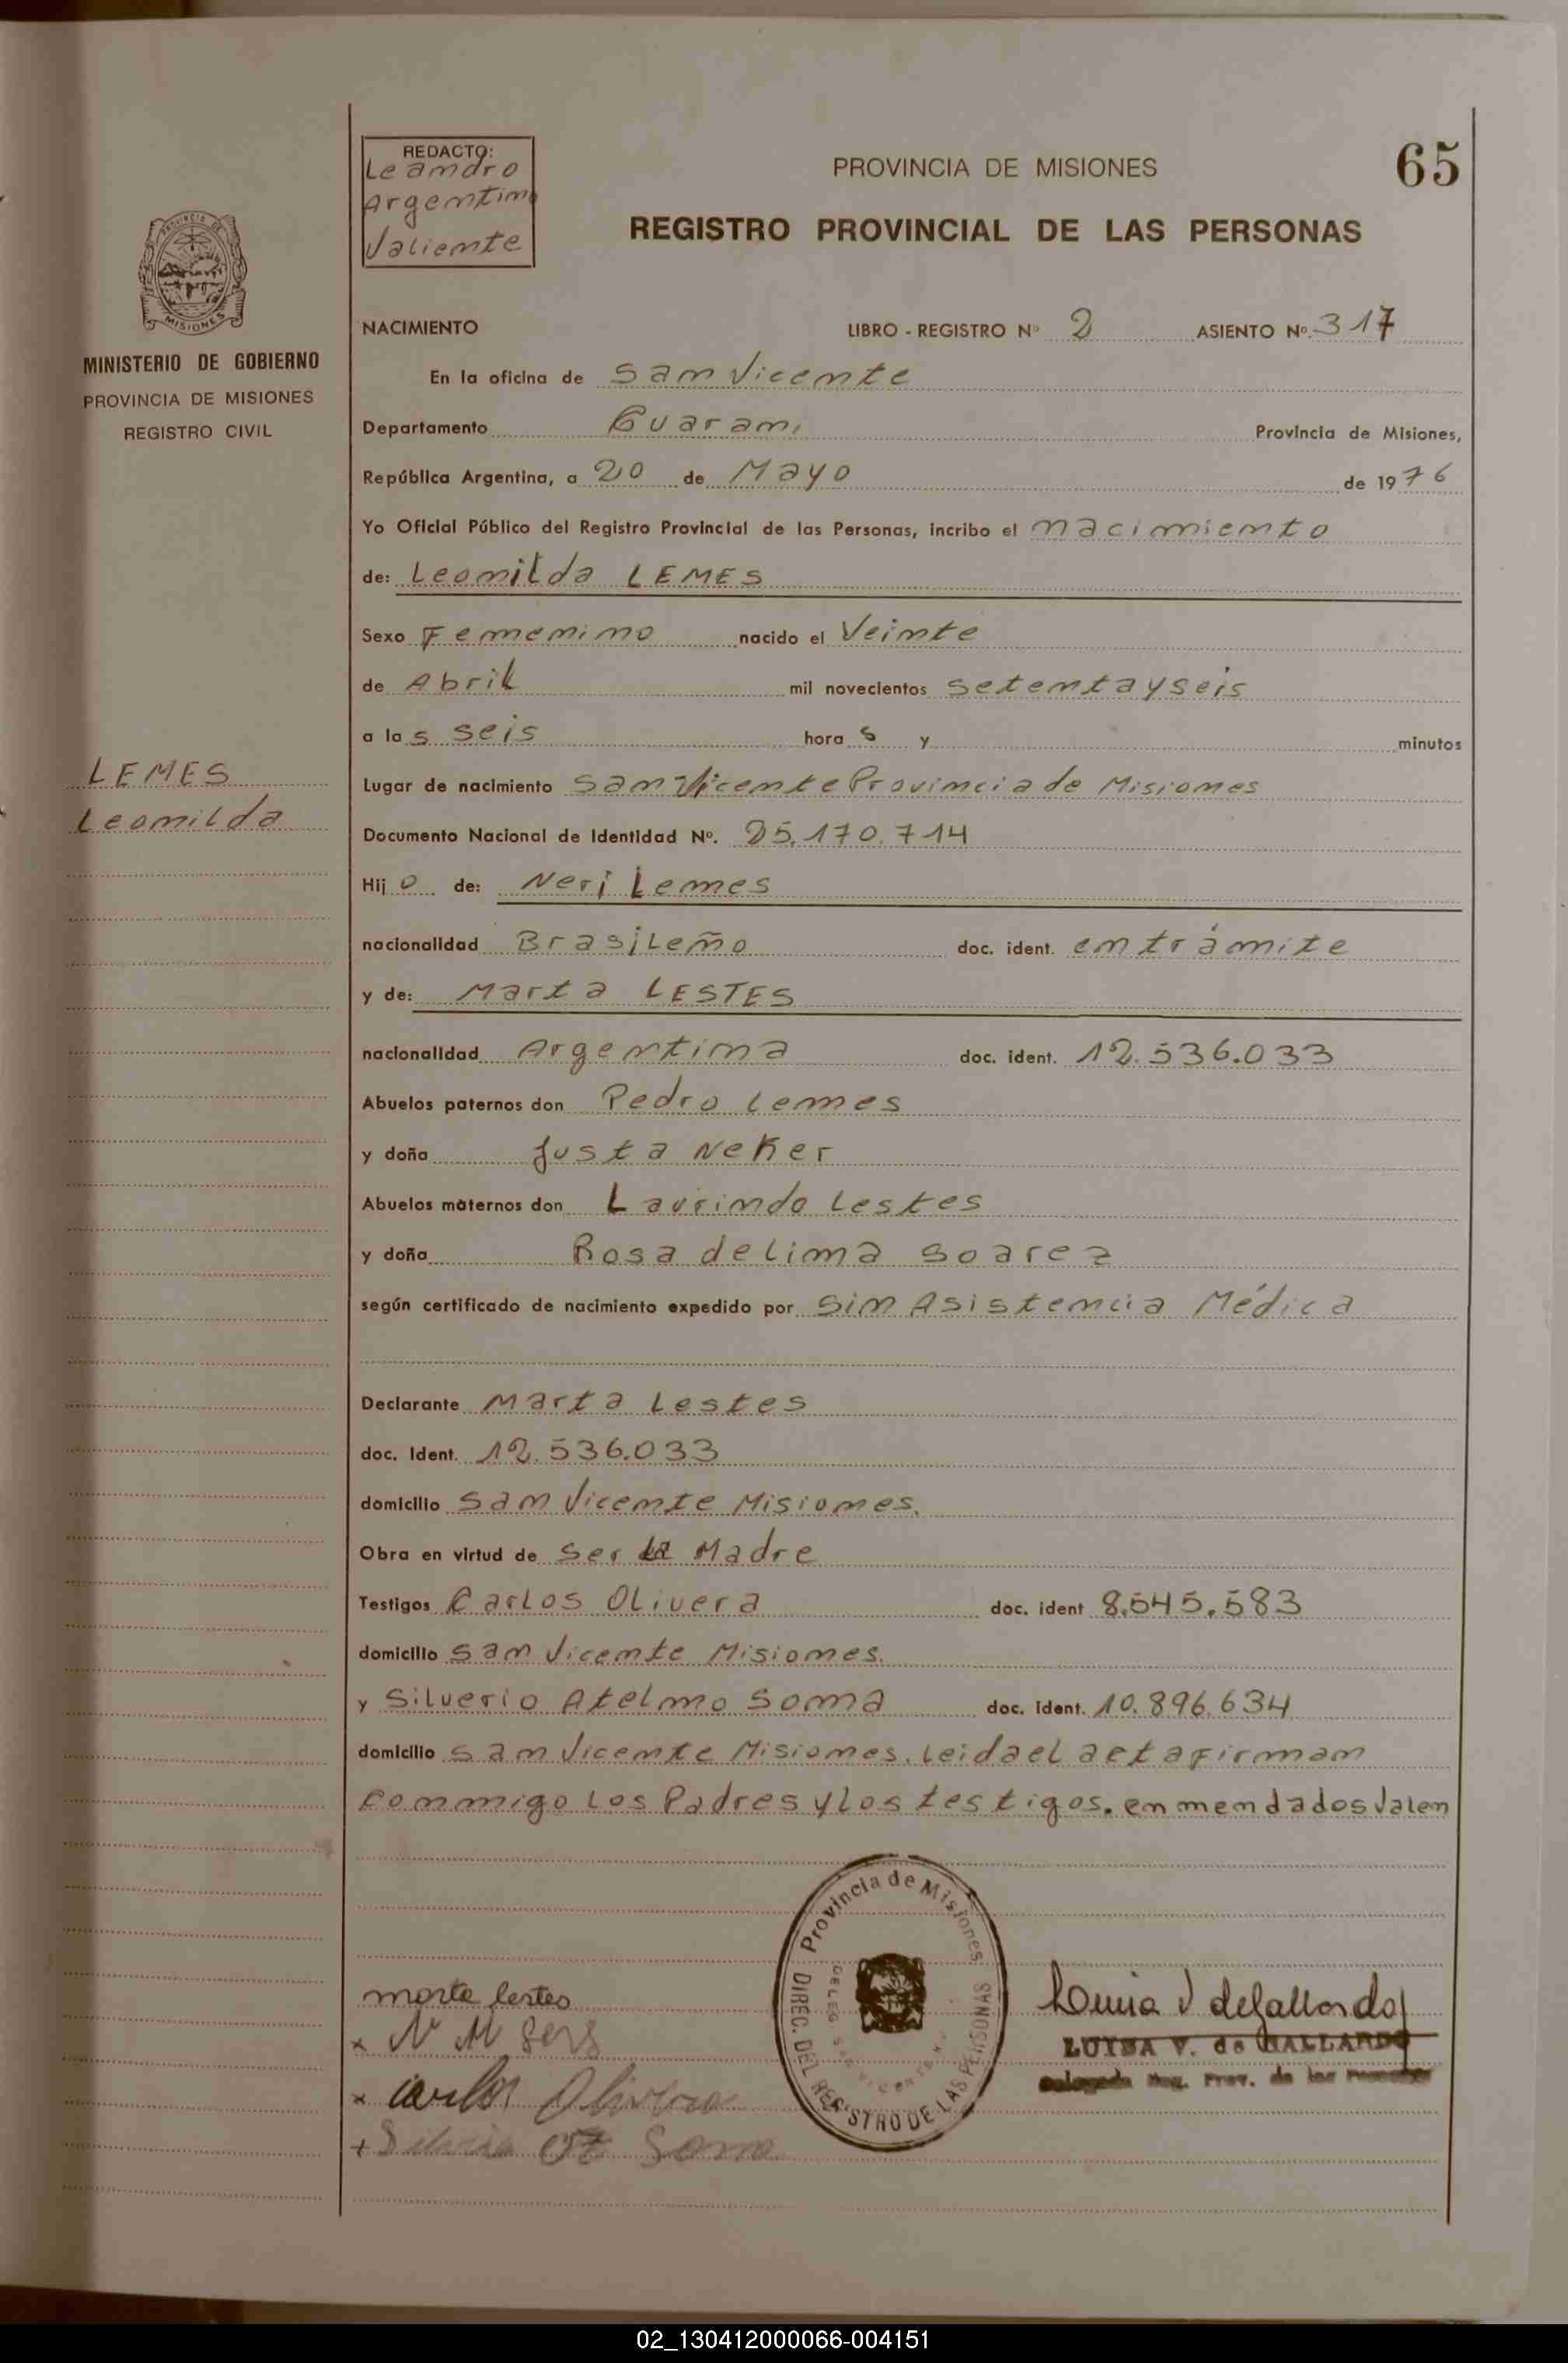 REDACTO:
Leandro
Argentino
Valiente
PROVINCIA DE MISIONES
65
REGISTRO PROVINCIAL DE LAS PERSONAS
PROVINCIA DE
MISIONES
MINISTERIO DE GOBIERNO
PROVINCIA DE MISIONES
REGISTRO CIVIL
NACIMIENTO LIBRO - REGISTRO Nº 2 ASIENTO Nº 317
En la oficina de San Vicente
Departamento Guarani Provincia de Misiones,
República Argentina, a 20 de Mayo de 1976
Yo Oficial Público del Registro Provincial de las Personas, incribo el nacimiento
de: Leonilda LEMES
Sexo Femenino nacido el Veinte
de Abril mil novecientos setentayseis
a las seis horas y minutos
LEMES
Leonilda
Lugar de nacimiento San Vicente Provincia de Misiones
Documento Nacional de Identidad Nº. 25.170.714
Hijo de: Neri Lemes
nacionalidad Brasileño doc. ident. en trámite
y de: Marta LESTES
nacionalidad Argentina doc. ident. 12.536.033
Abuelos paternos don Pedro Lemes
y doña Justa Neker
Abuelos maternos don Laurindo Lestes
y doña Rosa de Lima Soarez
según certificado de nacimiento expedido por Sin Asistencia Médica
Declarante Marta Lestes
doc. Ident. 12.536.033
domicilio San Vicente Misiones.
Obra en virtud de Ser la Madre
Testigos Carlos Olivera doc. ident 8.545.583
domicilio San Vicente Misiones.
y Silverio Atelmo Soma doc. Ident. 10.896.634
domicilio San Vicente Misiones. Leida el acta firman
conmigo Los Padres y los testigos. enmendados Valen
Provincia de Misiones
DIREC. DEL REGISTRO DE LAS PERSONAS
marta lestes
x
x Carlos Olivera
+ Soma
Luisa V de Gallardo
LUISA V. de GALLARDO
Delegada Reg. Prov. de las Personas
02_130412000066-004151